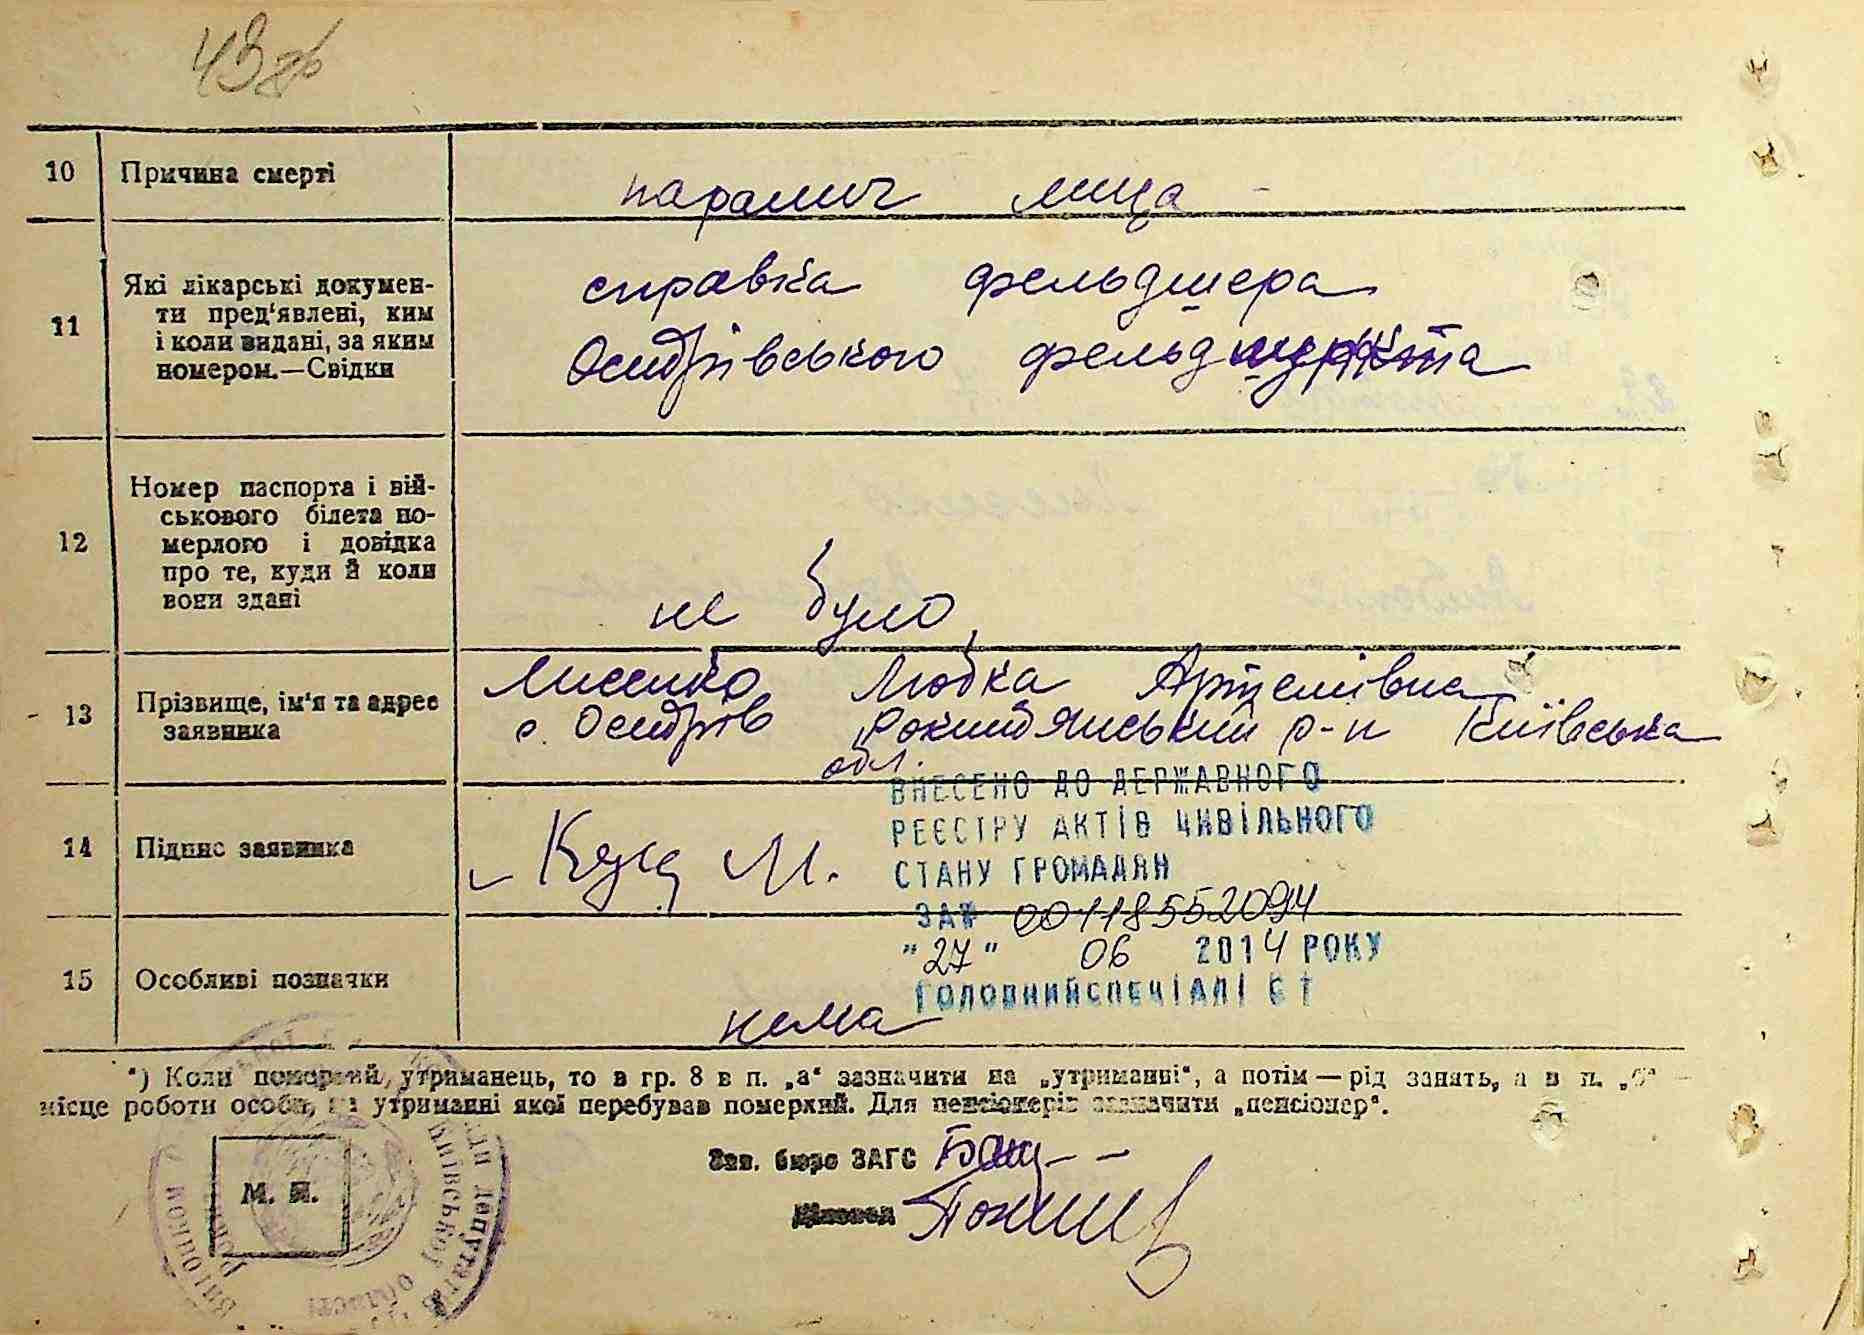 43 зв
10 Причина смерті
параліч лица
11 Які лікарські докумен-
ти пред'явлені, ким
і коли видані, за яким
номером.—Свідки
справка фельдшера
Острівського фельдшпункта
12 Номер паспорта і вій-
ськового білета по-
мерлого і довідка
про те, куди й коли
вони здані
не було
13 Прізвище, ім'я та адрес
заявника
Лисенко Любка Артемівна
с. Острів Рокитянський р-н Київська
обл.
14 Підпис заявника
Куц М.
ВНЕСЕНО ДО ДЕРЖАВНОГО
РЕЄСТРУ АКТІВ ЦИВІЛЬНОГО
СТАНУ ГРОМАДЯН
ЗА № 00118552094
"27" 06 2014 РОКУ
ГОЛОВНИЙ СПЕЦІАЛІСТ
15 Особливі позначки
нема
*) Коли померлий, утриманець, то в гр. 8 в п. „а“ зазначити на „утриманні“, а потім — рід занять, а в п. „б“ —
місце роботи особи, на утриманні якої перебував померлий. Для пенсіонерів зазначити „пенсіонер“.
Зав. бюро ЗАГС
М. П.
Діловод